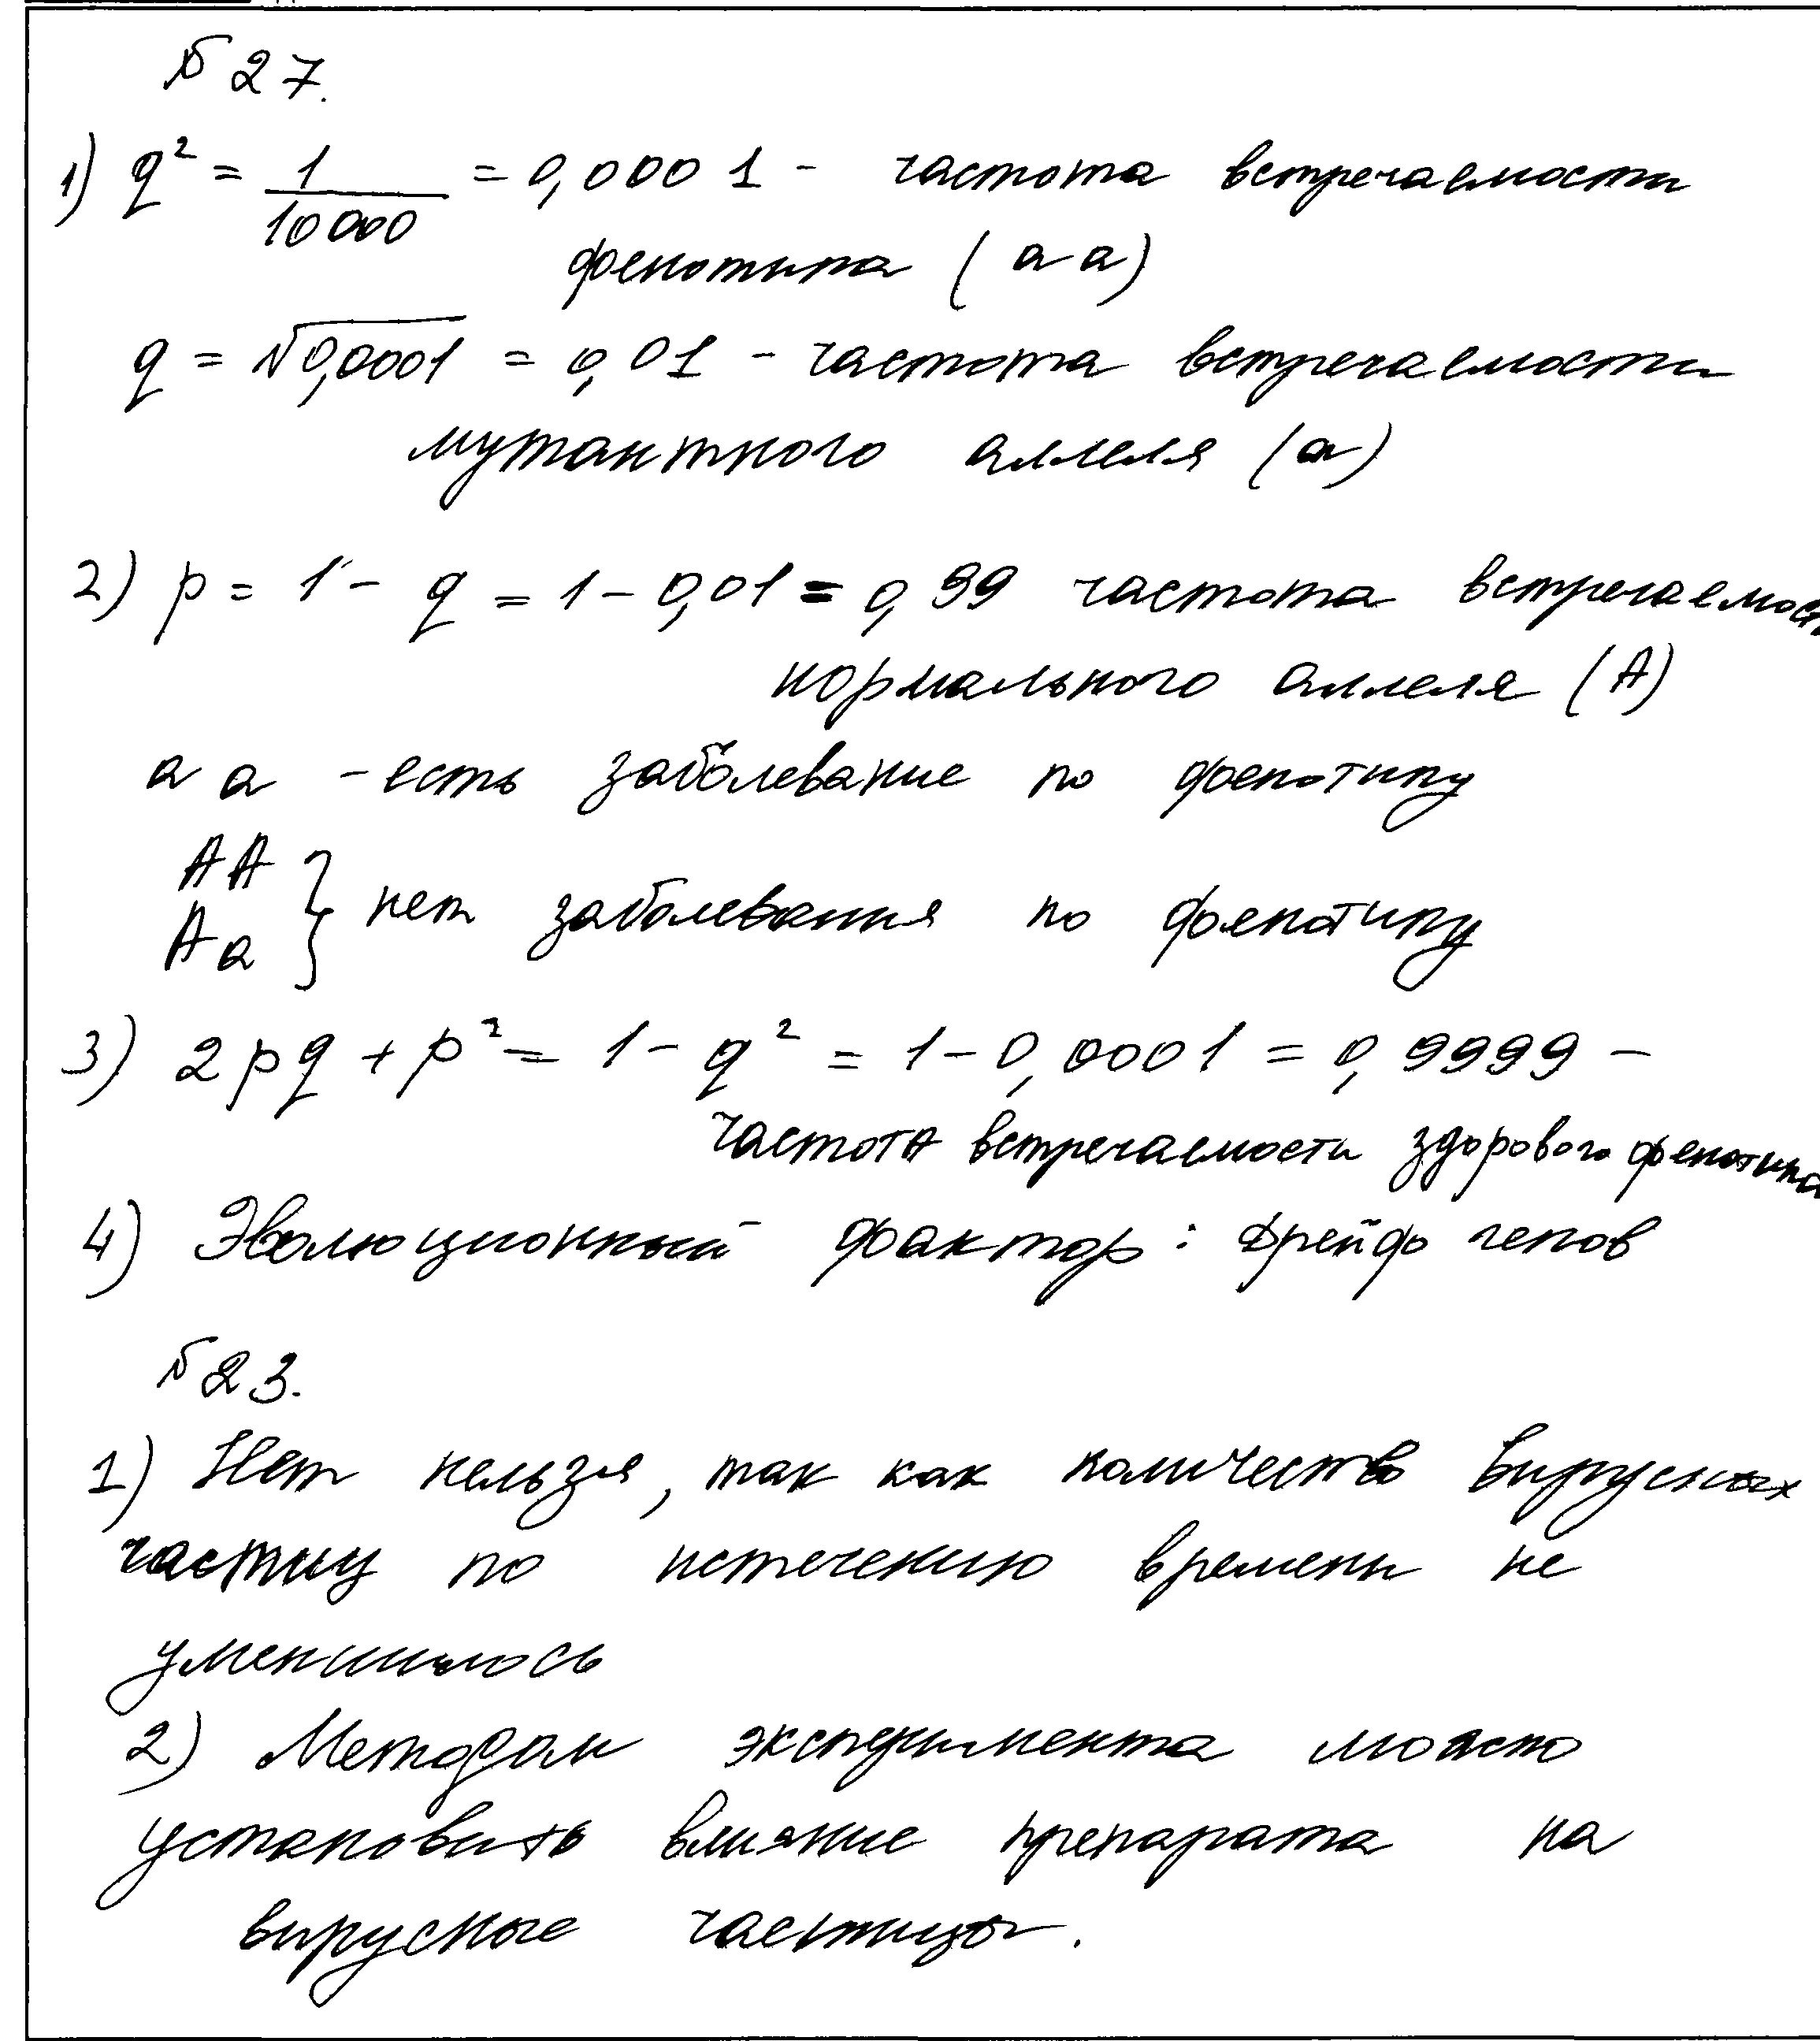 № 27.
1) q² = 1/10000 = 0,0001 - частота встречаемости
фенотипа (аа)
q = √0,0001 = 0,01 - частота встречаемости
мутантного аллеля (а)
2) p = 1 - q = 1 - 0,01 = 0,99 частота встречаемост
нормального аллеля (А)
аа - есть заболевание по фенотипу
АА
Аа } нет заболевания по фенотипу
3) 2pq + p² = 1 - q² = 1 - 0,0001 = 0,9999 -
частота встречаемости здорового фенотипа
4) Эволюционный фактор: Дрейф генов
№ 23.
1) Нет нельзя, так как количество вирусных
частиц по истечению времени не
уменшилось
2) Методом эксперимента можно
установить влияние препарата на
вирусные частицы.